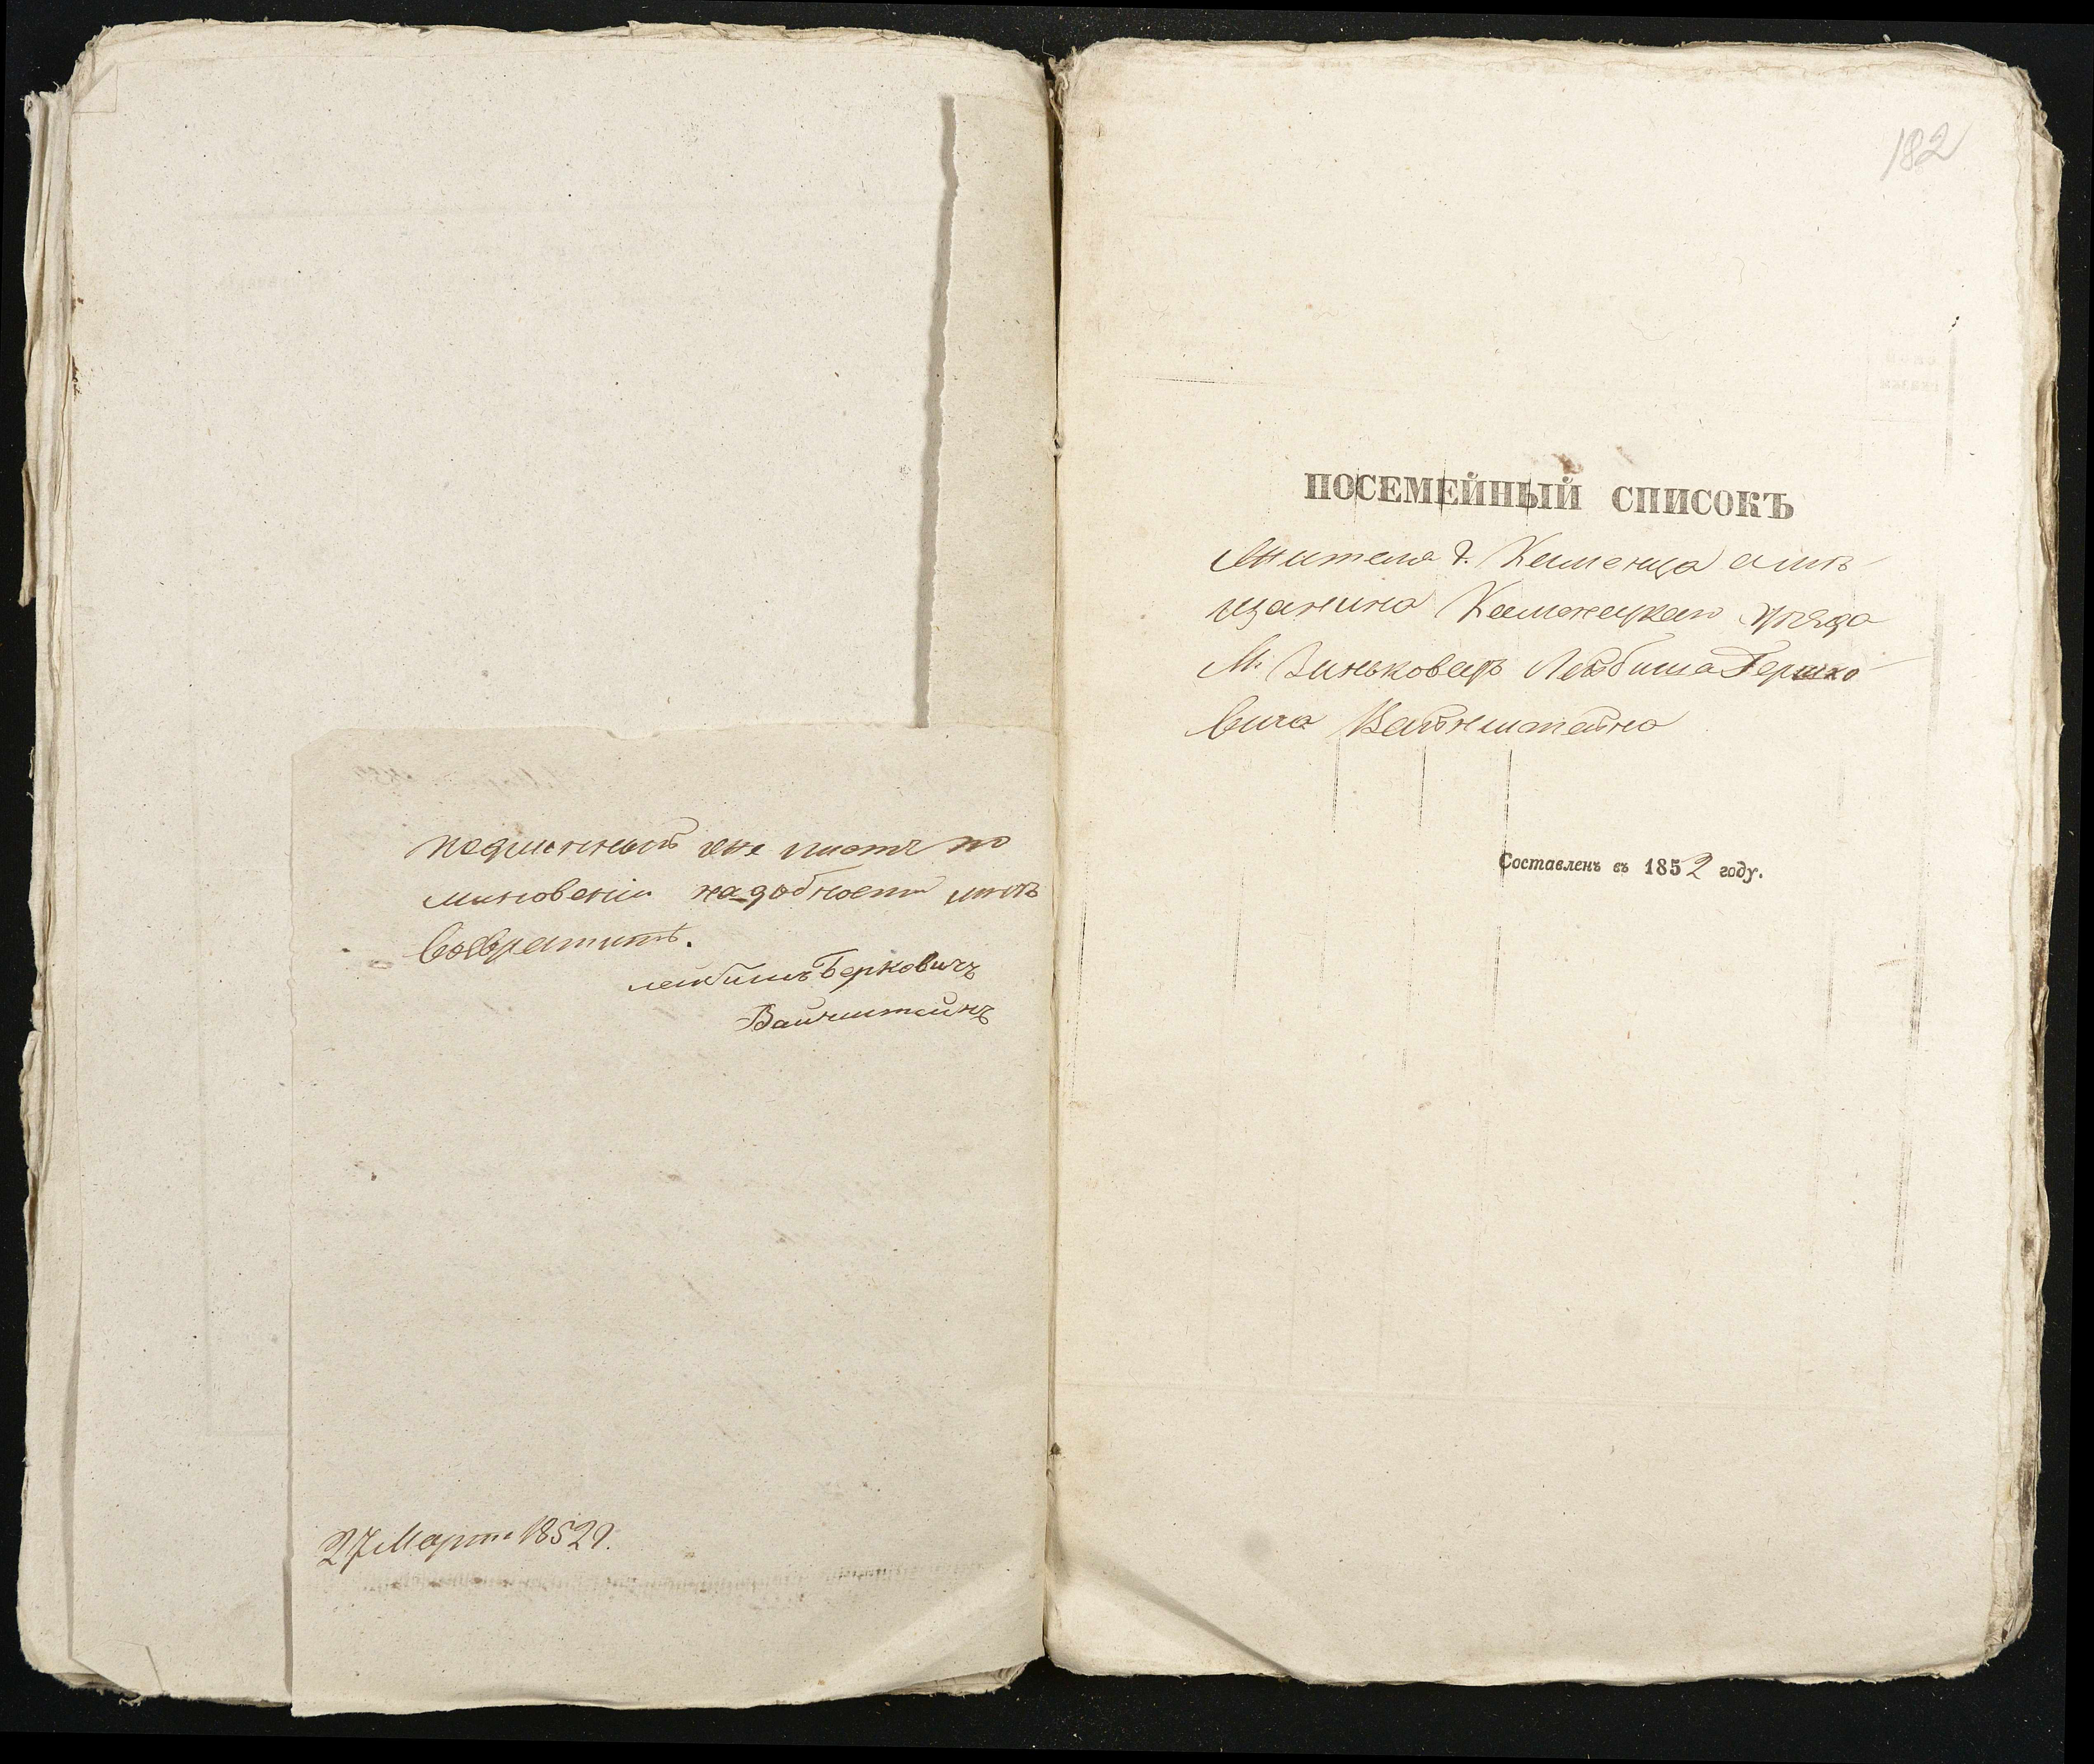 подлинный же листъ по
миновеніи надобности мнѣ
возвратить.
Лейбишъ Берковичъ
Вайнштейнъ
27 Марта 1852 г.
182
ПОСЕМЕЙНЫЙ СПИСОКЪ
Жителя г. Каменца а мѣ-
щанина Каменецкаго уѣзда
М. Зиньковецъ Лейбиша Гершко-
вича Вайнштейна
Составленъ въ 1852 году.